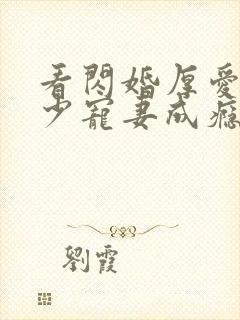 看閃婚厚愛
少寵妻成癮
劉霞